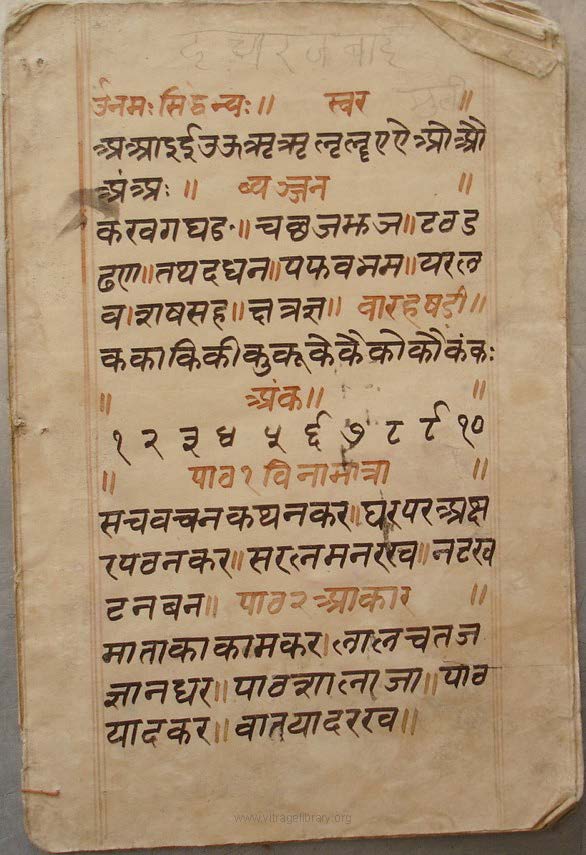 उनमः सिद्धन्यः॥ स्वर ॥
अआइईउऊऋॠऌॡएऐओऔ
अंअः॥ व्यञ्जन ॥
कखगघङ॥चछजझञ॥टठड
ढण॥तथदधन॥पफबभम॥यरल
व।शषसह॥क्षत्रज्ञ॥ वारहषडी॥
ककाकिकीकुकूकेकैकोकौकंकः
॥ अंक॥ ॥
१ २ ३ ४ ५ ६ ७ ८ ९ १०
॥ पाठ१विनामात्रा ॥
सचवचनकथनकर॥घरपरअक्ष
रपठनकर॥सरलमनरख॥नटख
टनबन॥ पाठ२आकार ॥
माताकाकामकर।लालचतज
ज्ञानधर॥पाठशालाजा॥पाठ
यादकर॥वातयादरख॥
www.vitragelibrary.org